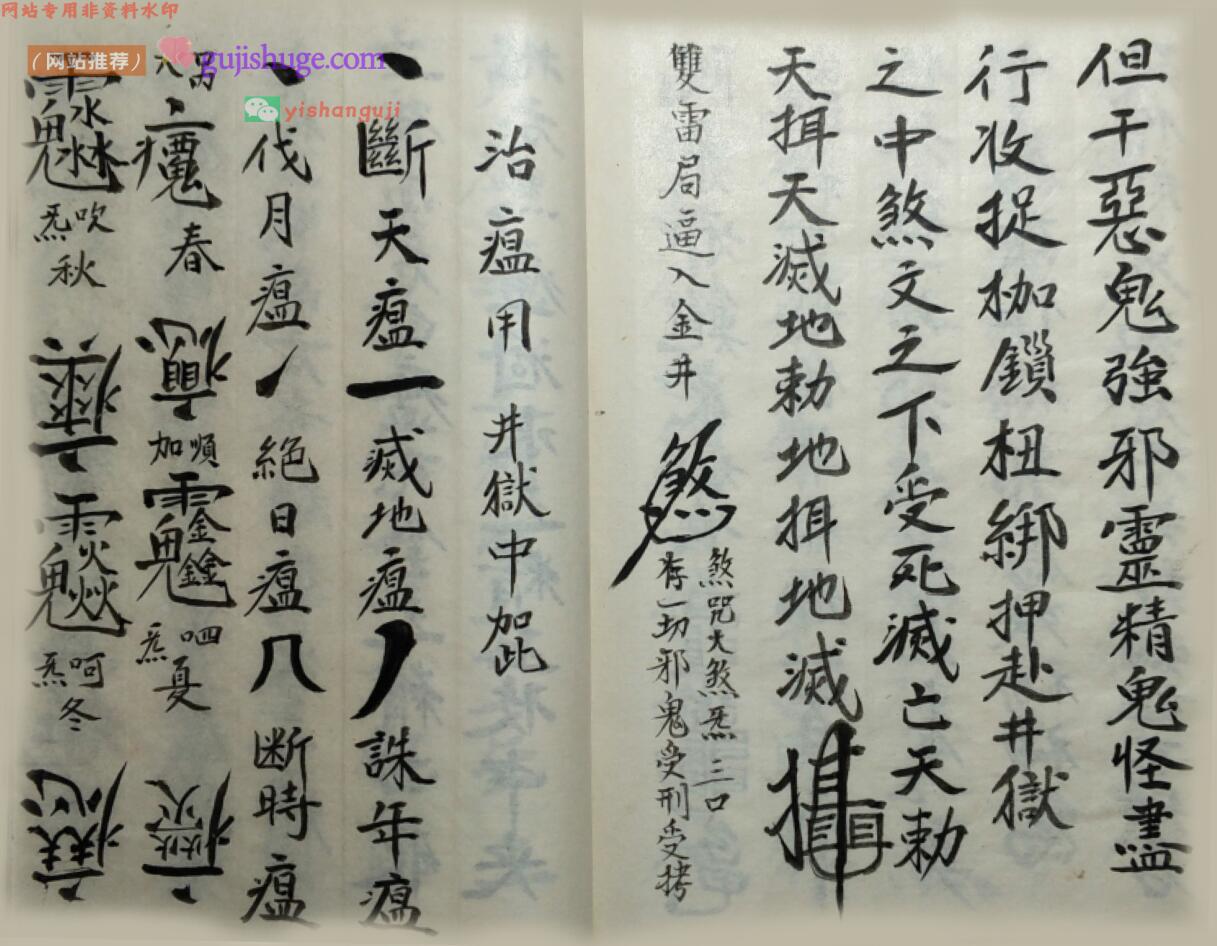 网站专用非资料水印
(网站推荐)
gujishuge.com
yishanguji
但干惡鬼強邪靈精鬼怪盡
行收捉枷鎖杻綁押赴井獄
之中煞文之下受死滅亡天勅
天揖天滅地勅地揖地滅
雙雷局逼入金井
煞咒大煞炁三口
存一切邪鬼受刑受拷
治瘟用 井獄中加此
丶斷天瘟一滅地瘟丿誅年瘟
丶伐月瘟丿絕日瘟八断時瘟
春
加順
呬炁
夏
吹炁
秋
呵炁
冬